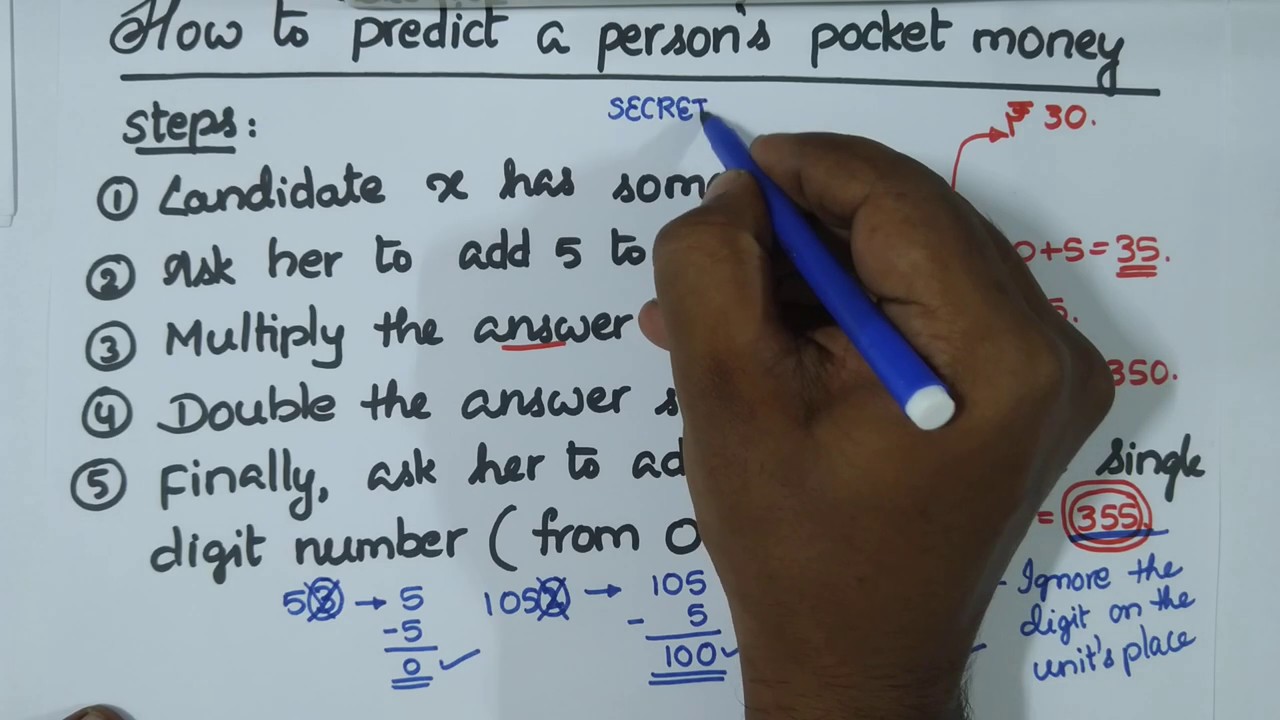 How to predict a person's pocket money
steps:
SECRET
₹ 30.
① Candidate x has
② Ask her to add 5 to
+5=35.
③ Multiply the answer
5.
④ Double the answer
350.
⑤ Finally, ask her to
single
digit number (from 0
= 355.
53 → 5
-5
0 ✓
1052 → 105
- 5
100
- Ignore the
digit on the
unit's place